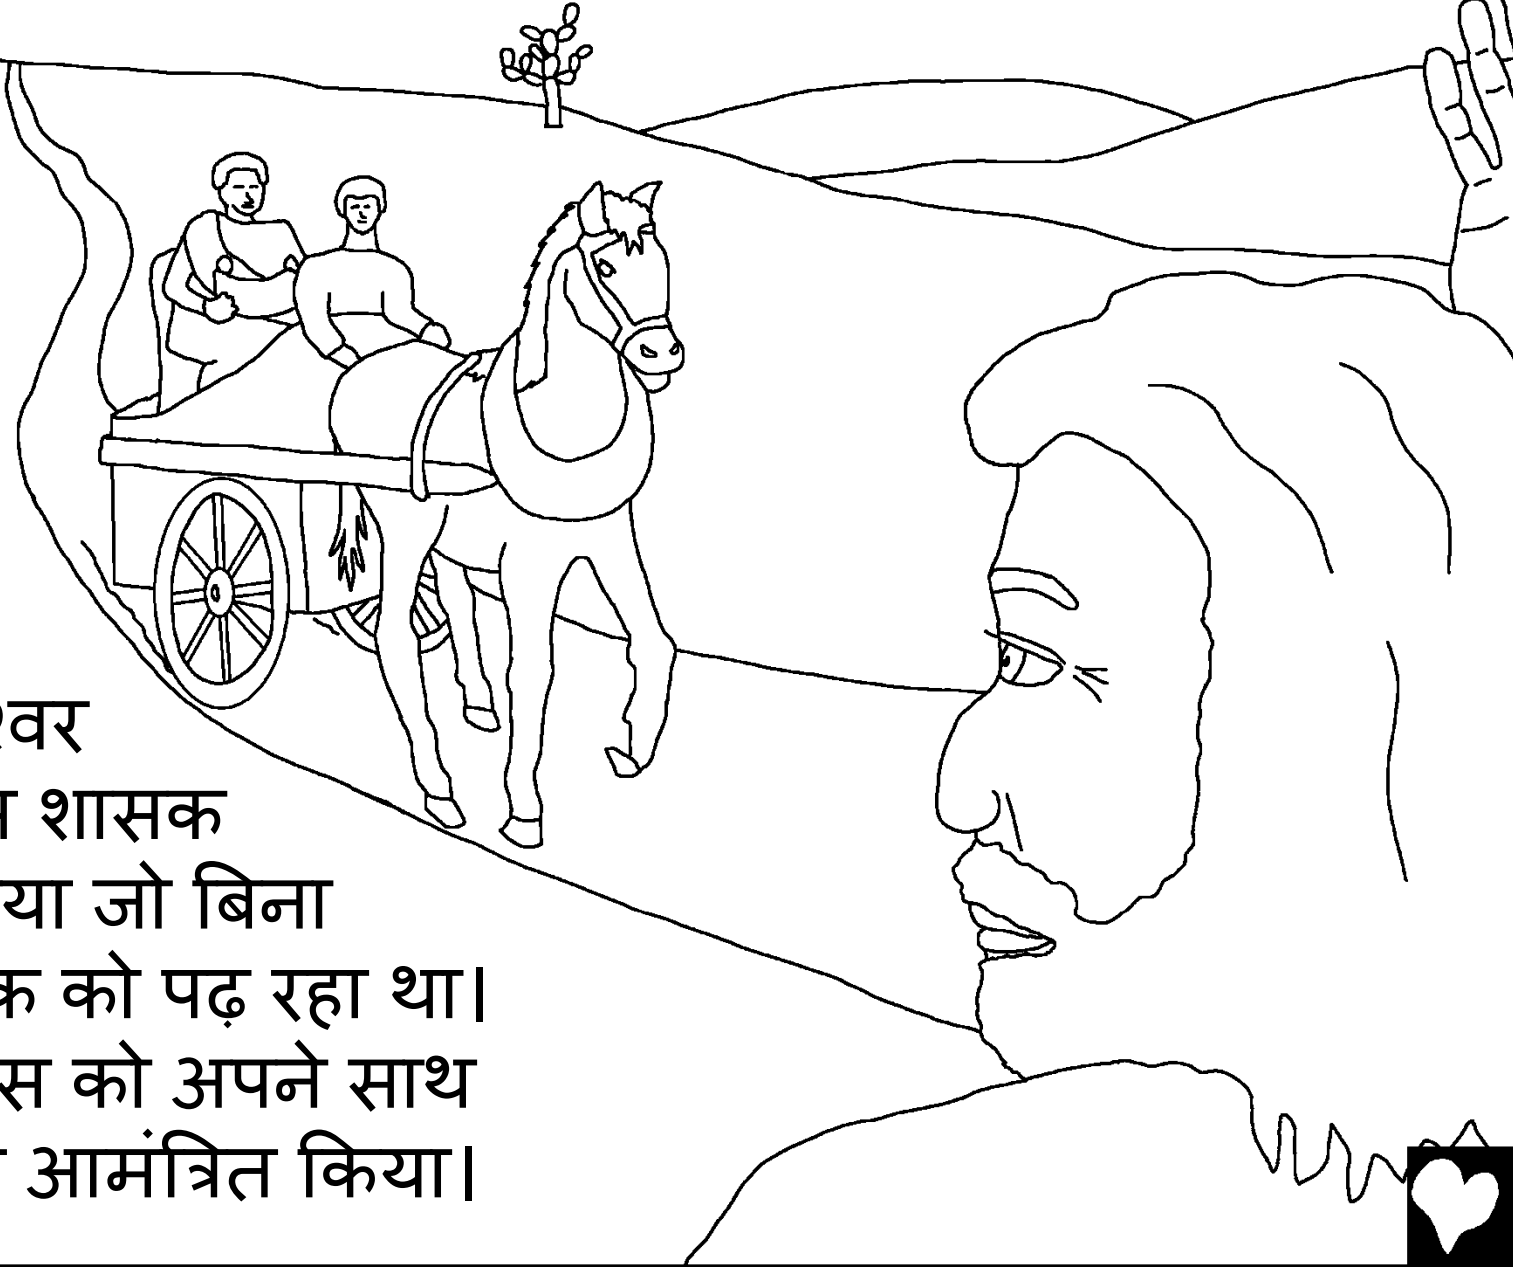 शासक
जो बिना
को पढ़ रहा था।
को अपने साथ
आमंत्रित किया।